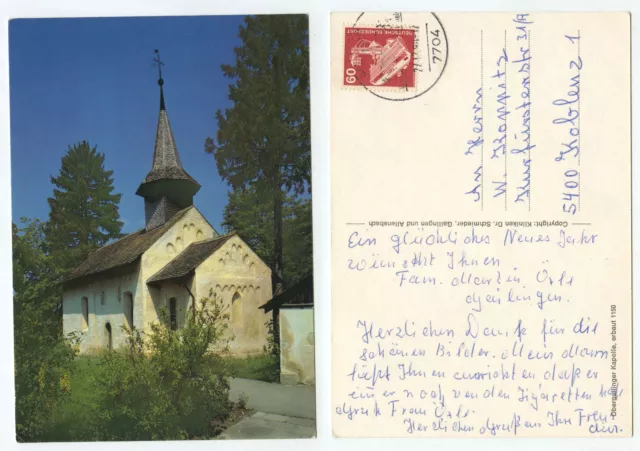 DEUTSCHE BUNDESPOST
60
7704
An Herrn
W. Koppitz
Kurfürstenstr 31/A
5400 Koblenz 1
Copyright: Kliniken Dr. Schmieder, Gailingen und Allensbach
Ein glückliches Neues Jahr
wünscht Ihnen
Fam. Martin Örle
Gailingen.
Herzlichen Dank für die
schönen Bilder. Mein Mann
läßt Ihnen ausrichten daß er
ein er noch von den Zigaretten hat
Gruß Frau Örle
Herzlichen Gruß an Ihn
Obergailinger Kapelle, erbaut 1150